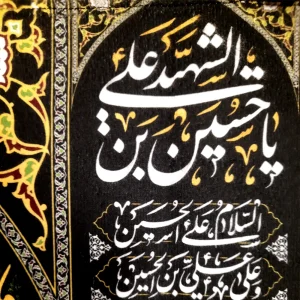 يا حسين بن علي الشهيد
السلام علی الحسین
وعلی علي بن الحسین